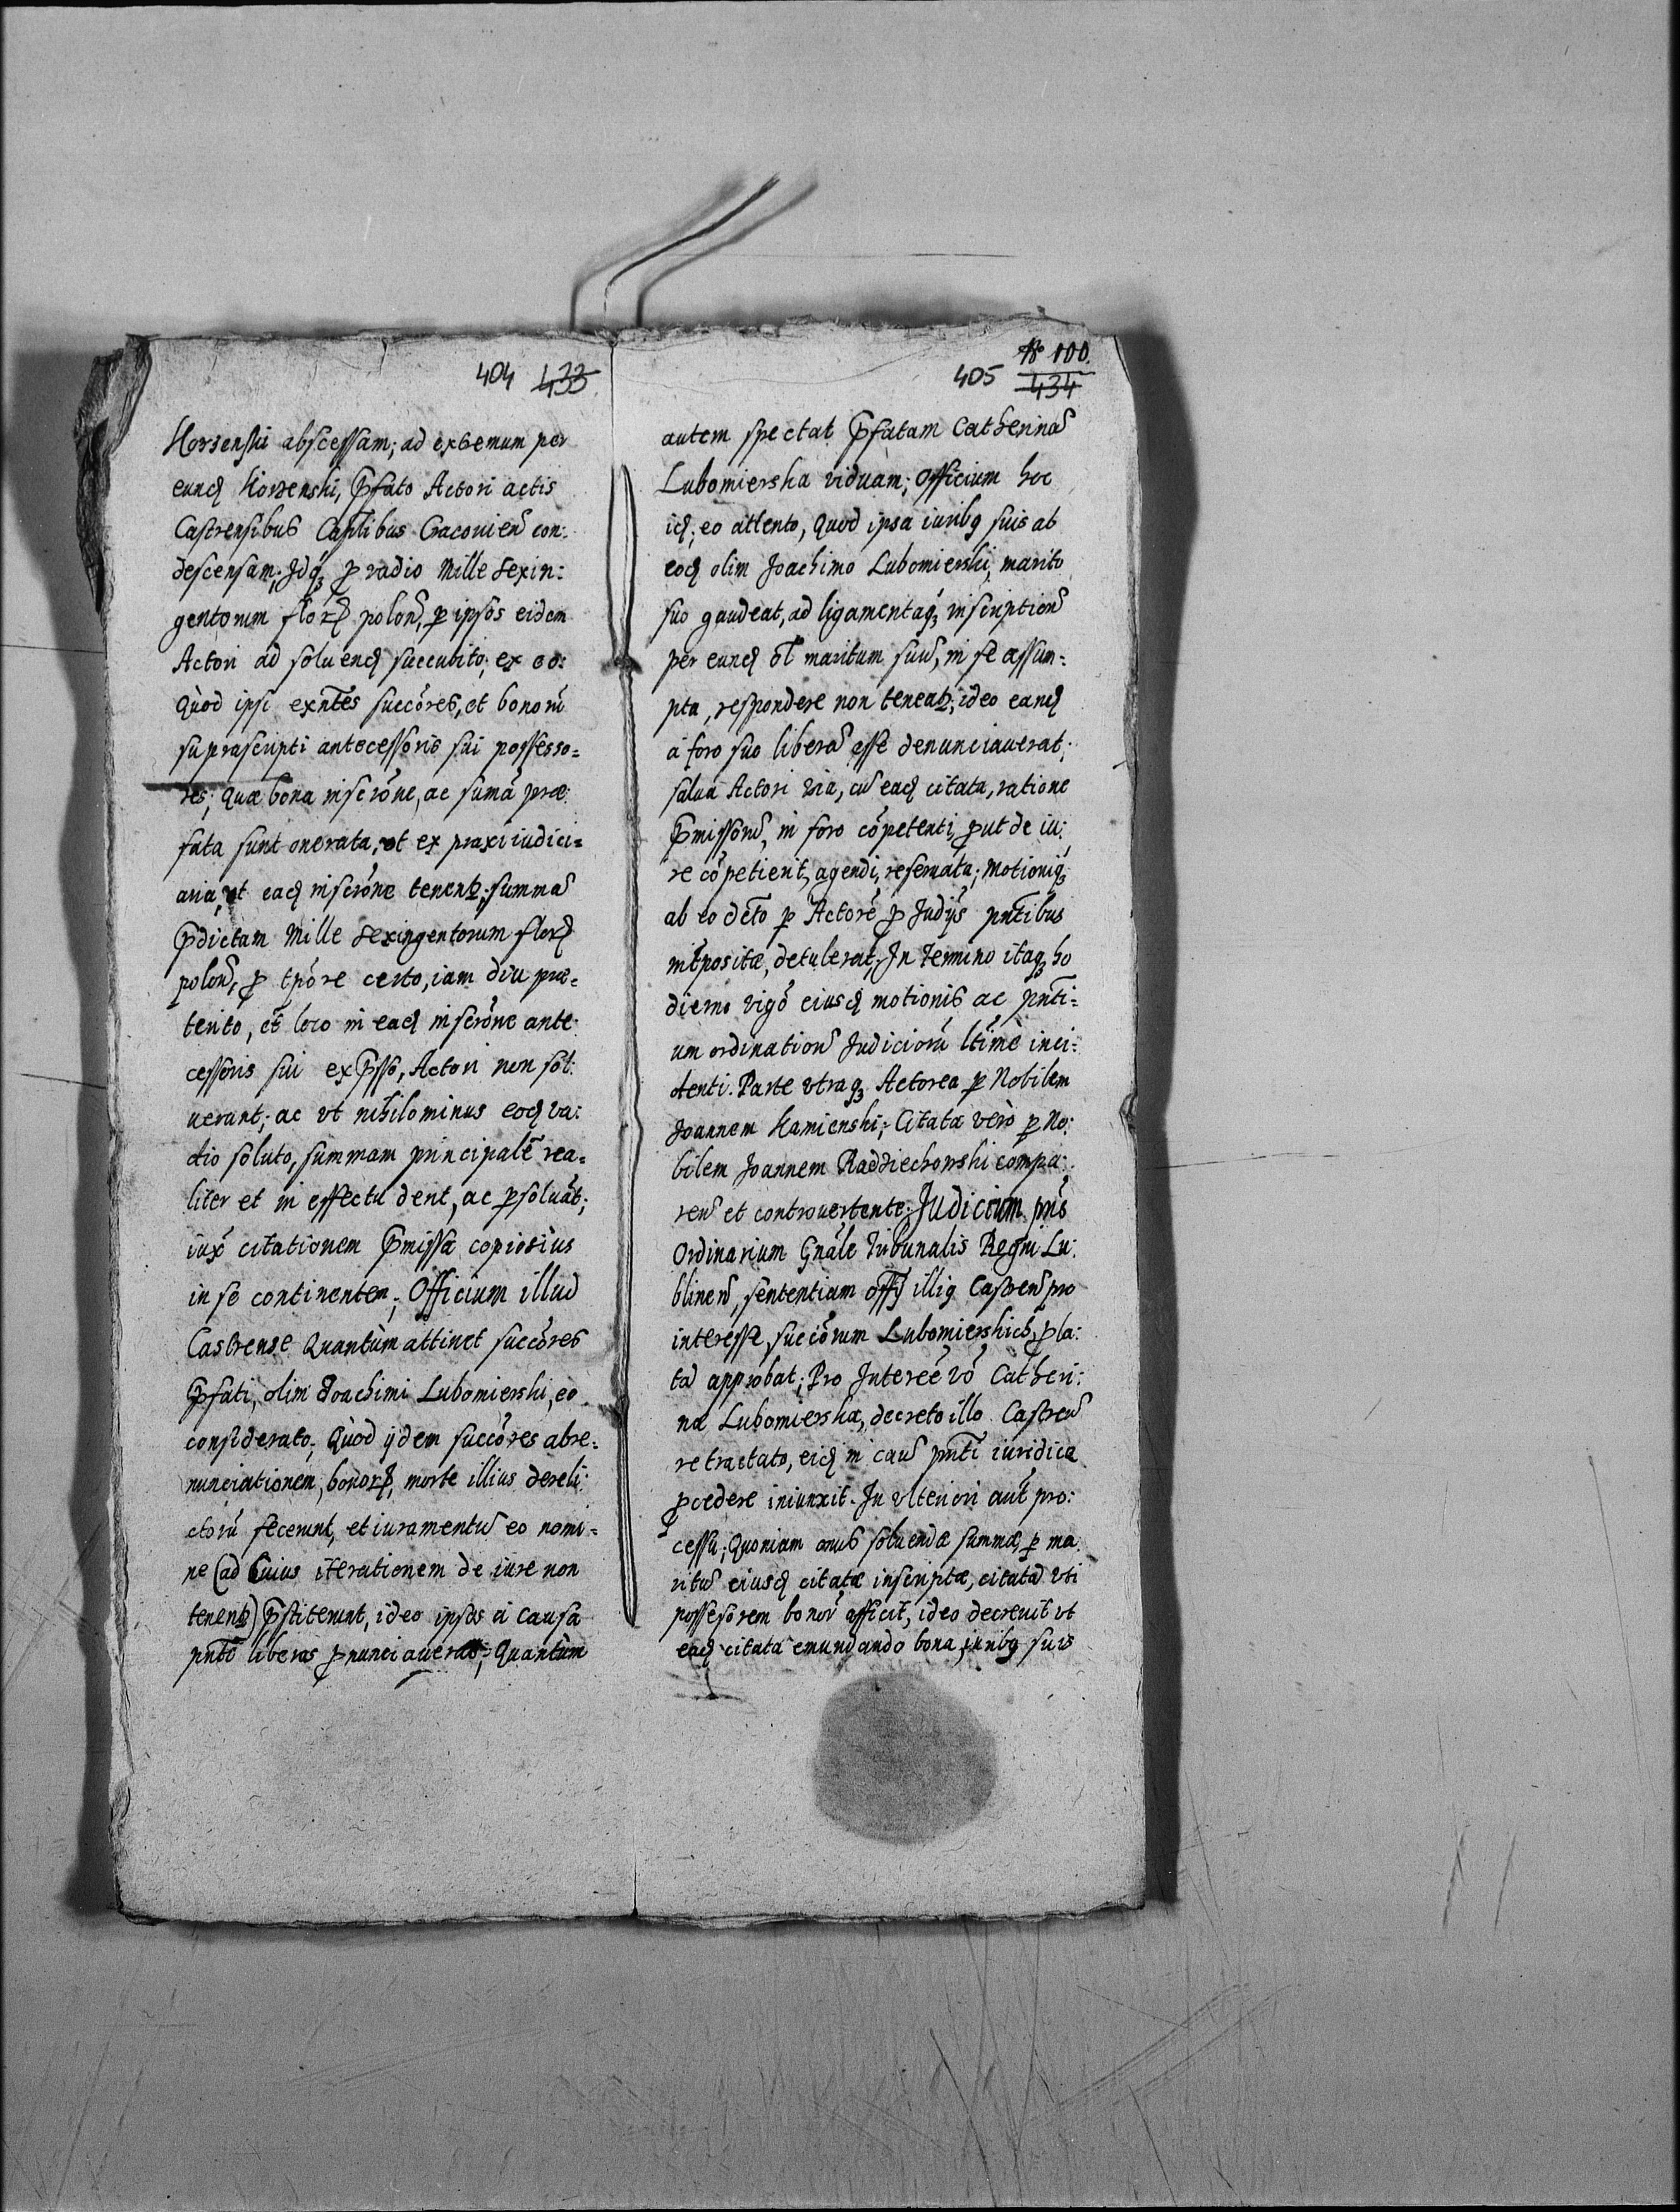 404 433
Horzenski abscessam; ad extremum per
eund Korzenski, Pfato Actori actis
Castrensibus Capitlibus Cracovien con:
descensam; Idq₃ p vadio Mille Sexin:
gentorum florꝝ polon, p ipsos eidem
Actori ad soluend succubito; ex eo:
Quòd ipsi exntes succōres, et bonorū
suprascripti antecessoris sui possesso=
res; quæ bona inscrōne, ac sumā præ:
fata sunt onerata, et ex praxi iudici=
aria, ut ead inscrōne tenentr; summā
Pdictam Mille Sexingentorum florꝝ
polon, p tpōre certo, iam diu præ=
terito, et loco in ead inscrōne ante
cessoris sui exPsso, Actori non sol:
uerunt; ac vt nihilominus eod va:
dio soluto, summam principalē rea=
liter et in effectu dent, ac psoluāt;
iuxᵃ citationem Pmissa copiosius
in se continentem; Officium illud
Castrense Quantùm attinet succōres
Pfati, olim Joachimi Lubomierski, eo
considerato; Quòd ijdem succōres abre=
nunciationem, bonorꝝ, morte illius dereli:
ctorū fecerunt, et iuramentū eo nomi=
ne (ad cuius iterationem de iure non
tenentr) Pstiterunt, ideo ipsos à causa
pnti liberos pnunciaverat; Quantùm
No 100.
405 434
autem spectat Pfatam Catherinā
Lubomierska viduam; Officium hoc
id; eo attento, Quod ipsa iuribꝗ suis ab
eod olim Joachimo Lubomierski, marito
suo gaudeat, ad ligamentaq₃ inscription
per eund ol maritum suū, in se assum=
pta, respondere non teneatr; ideo eand
à foro suo liberā esse denunciaverat;
salva Actori via, cū ead citata, ratione
Pmissorū, in foro cōpetenti, put de iu:
re cōpetierit, agendi, reservata; Motioniq₃
ab eo dcto p Actorē p Iudijs pntibus
intpositæ, detulerat; In Termino itaq₃ ho
dierno vigō eiusd motionis ac pnti=
um ordination Iudiciorū ltime inci:
denti. Parte utraq₃ Actorea p Nobilem
Joannem Kamienski; Citata verò p No:
bilem Joannem Radziechowski compa:
ren et controvertente; Judicium pns
Ordinarium Gnāle Tribunalis Regni Lu:
blinen, sententiam offij illiꝗ Castren pro
interesse, succōrum Lubomierskich, pla:
tā approbat; Pro Intereē vō Catheri:
na Lubomierska, decreto illo Castren
retractato, eid in caū pnti iuridica
pcedere iniunxit. In vlteriori aut pro:
cessu; Quoniam onus soluendæ summæ, p ma
ritū eiusd citatæ inscriptæ, citatā vti
possesorem bonorū afficit, ideo decrevit vt
ead citata emundando bona, iuribꝗ suis